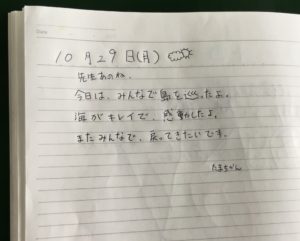 Date
10月29日(月)
先生あのね、
今日は、みんなで島を巡ったよ。
海がキレイで、感動したよ。
またみんなで、戻ってきたいです。
たまちゃん